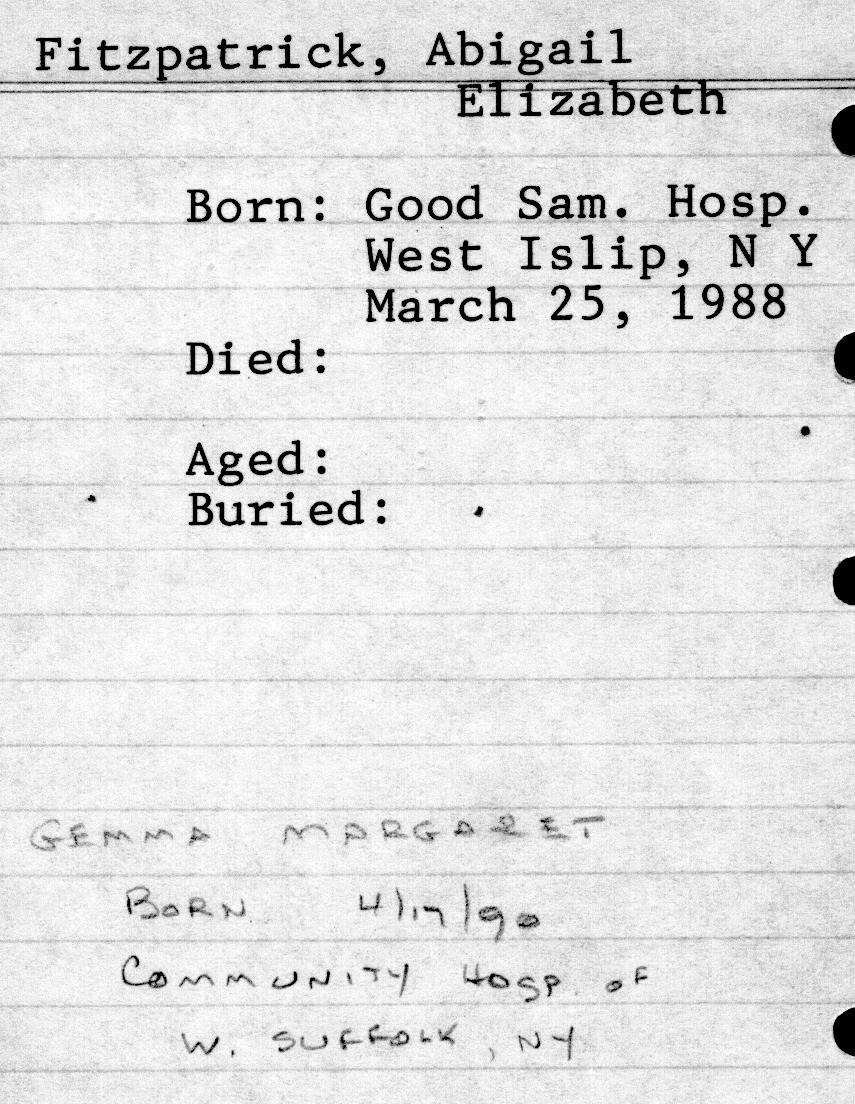 Fitzpatrick, Abigail
Elizabeth
Born: Good Sam. Hosp.
West Islip, N Y
March 25, 1988
Died:
Aged:
Buried:
GEMMA MARGARET
BORN 4/17/90
COMMUNITY HOSP. OF
W. SUFFOLK, NY